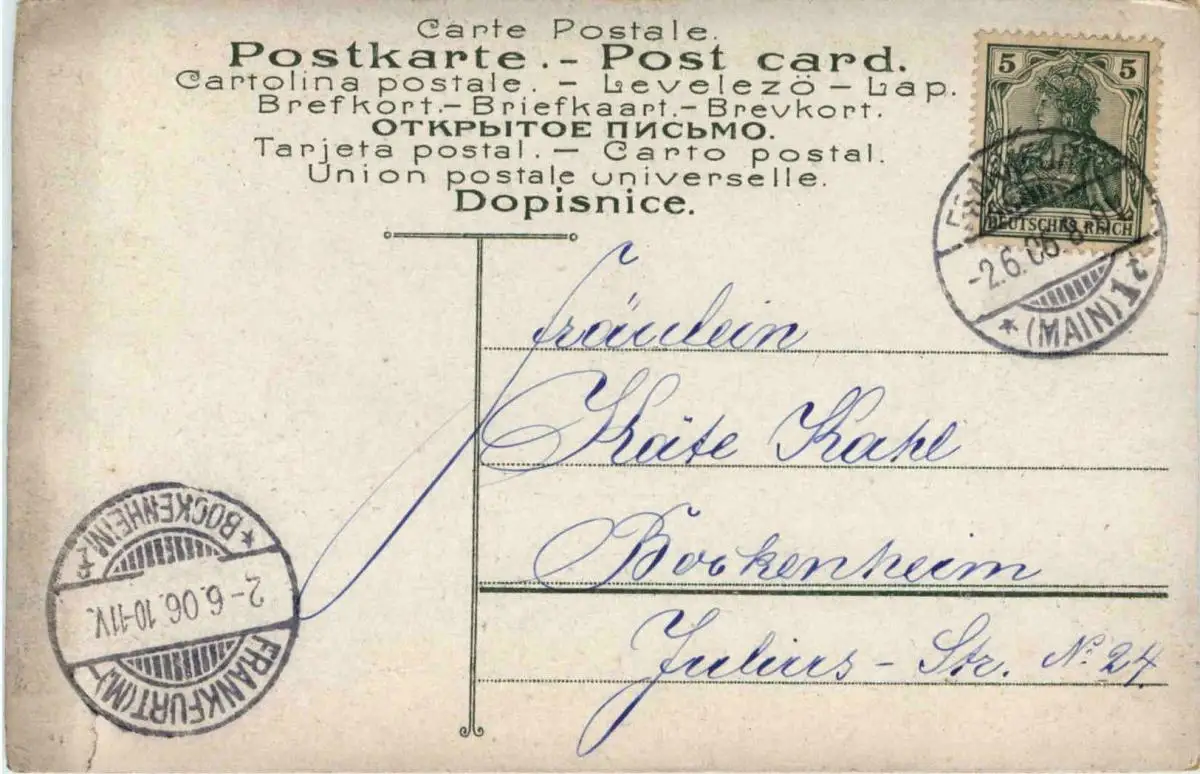 Carte Postale.
Postkarte. - Post card.
Cartolina postale. - Levelezö - Lap.
Brefkort. - Briefkaart. - Brevkort.
ОТКРЫТОЕ ПИСЬМО.
Tarjeta postal. - Carto postal.
Union postale universelle.
Dopisnice.
5 5
DEUTSCHES REICH
-2.6.06.8
* (MAIN) 1
Fräulein
Käte Kahl
Bockenheim
Julius-Str. No. 24.
* BOCKENHEIM
2-6.06.10-11V.
FRANKFURT (M)-